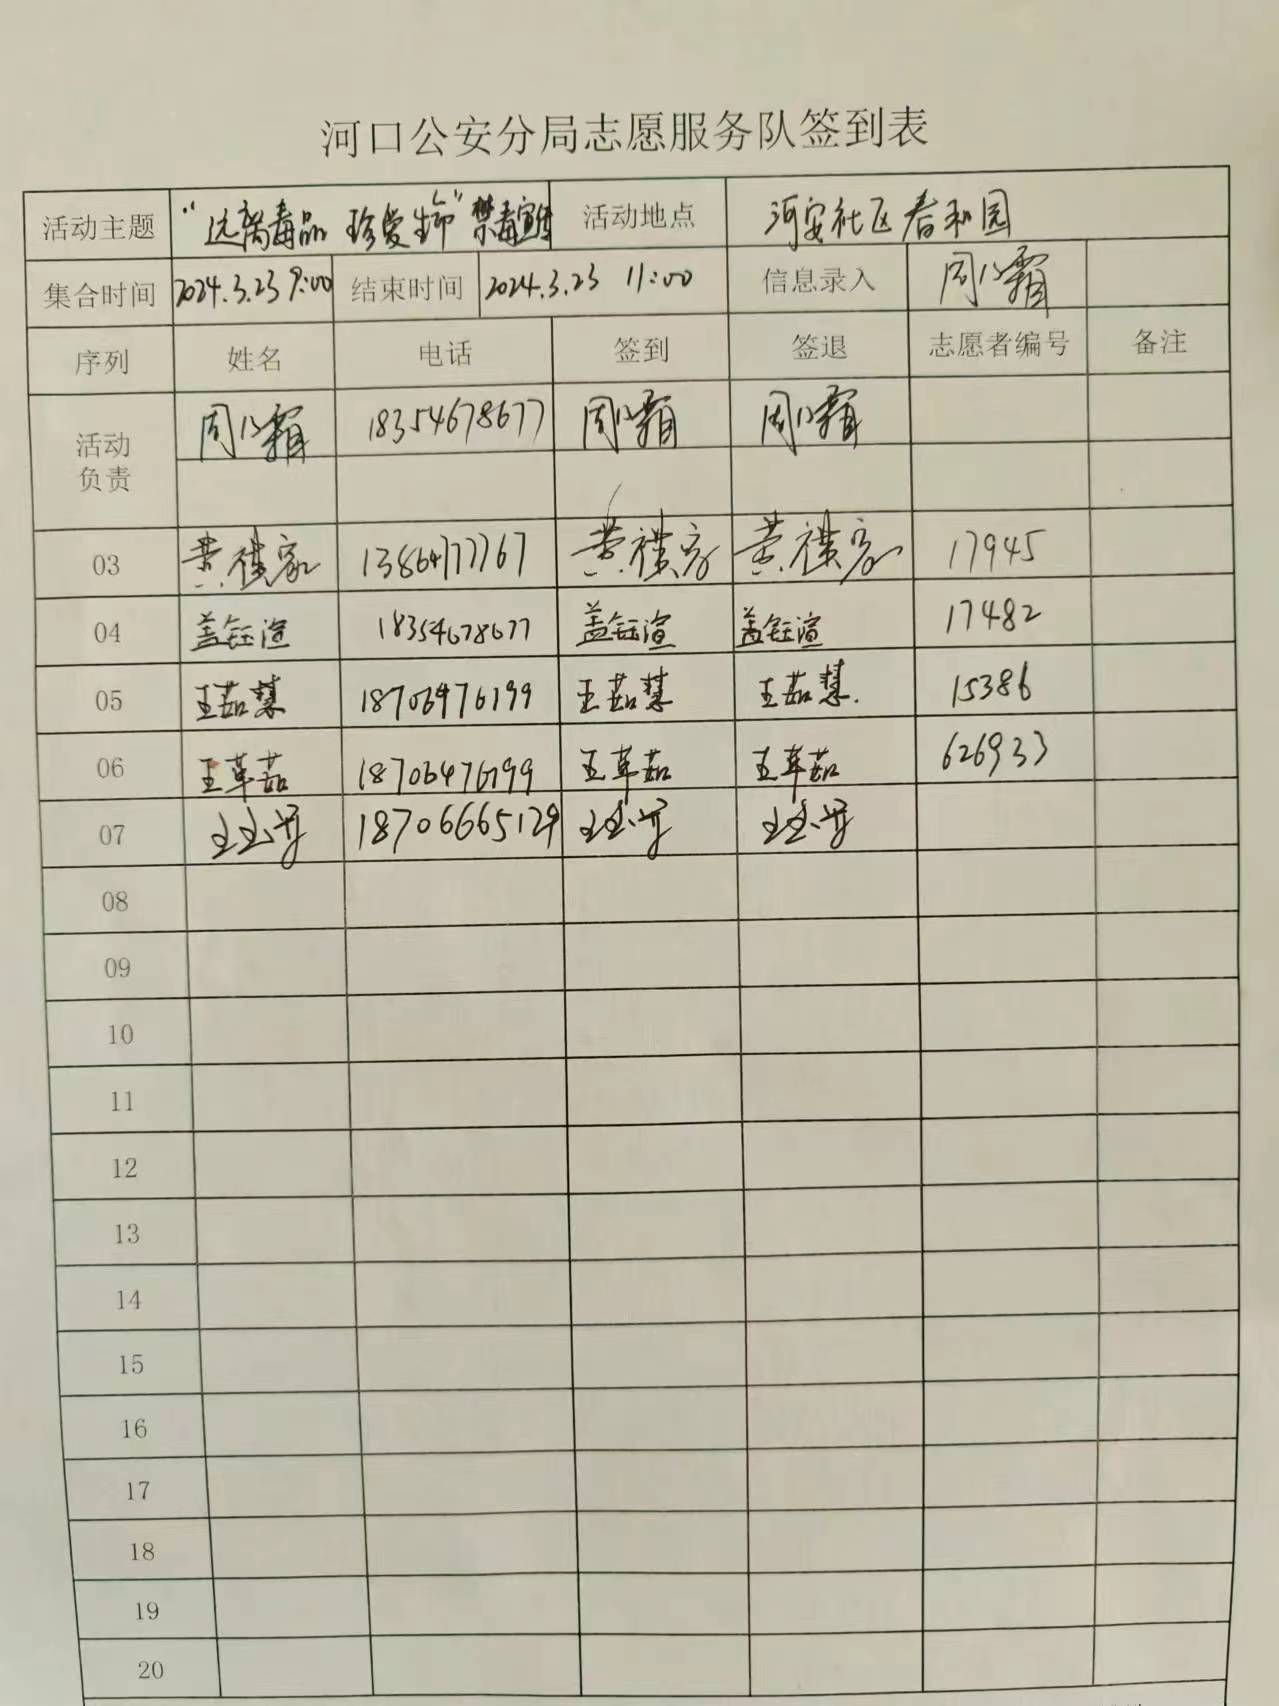 河口公安分局志愿服务队签到表
活动主题 “远离毒品 珍爱生命”禁毒宣传 活动地点 河安社区春和园
集合时间 2024.3.23 9:00 结束时间 2024.3.23 11:00 信息录入 周霜
序列 姓名 电话 签到 签退 志愿者编号 备注
活动负责 周霜 18354678677 周霜 周霜
03 黄祺家 13864777767 黄祺家 黄祺家 17945
04 盖钰渲 18354678677 盖钰渲 盖钰渲 17482
05 王茹慧 18706476199 王茹慧 王茹慧. 15386
06 王苹茹 18706476199 王苹茹 王苹茹 626933
07 18706665129
08
09
10
11
12
13
14
15
16
17
18
19
20